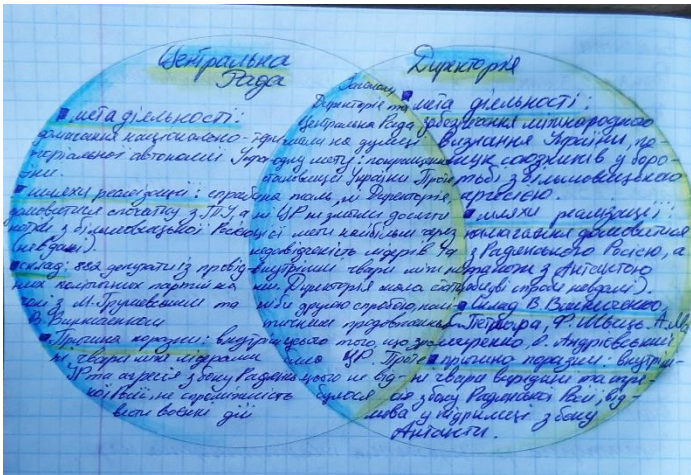 Центральна
Рада
мета діяльності:
домагання національно-тери-
торіальної автономії Укра-
їни.
шляхи реалізації: спроба
домовитися спочатку з ТУ, а
потім з більшовицької Росією
(невдалі).
склад: депутати із провід-
них політичних партій на
чолі з М. Грушевським та
В. Винниченком
Причина поразки: внутріш-
ні чвари між лідерами
ЦР та агресія з боку Радянсь-
кої Росії, не спроможність
вести воєнні дії
Загалом,
Директорія та
Центральна Рада
мали на думці
одну мету: покращення
України. Проте
ні Директорія,
ні ЦР не змогли досягти
цієї мети найбільше через
недосвідченість лідерів та
внутрішні чвари між
ними. Директорія мала
ніби другою спробою,
продовження
того, що
ЦР. Проте
цього не від-
булося
Директорія
мета діяльності:
забезпечання міжнародного
визнання України, по-
шук союзників у боро-
тьбі з більшовицькою
агресією.
шляхи реалізації:
намагання домовитися
з Радянською Росією, а
потім з Антантою
(обидві спроби невдалі).
Склад: В. Винниченко,
Петлюра, Ф. Швець, А. Ма-
каренко, О. Андрієвський
причина поразки: внутріш-
ні чвари всередині та агре-
сія збоку Радянської Росії, від-
мова у підтримці з боку
Антанти.